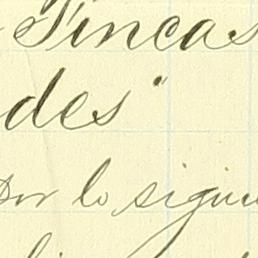 Fincas
des"
Por lo sigui